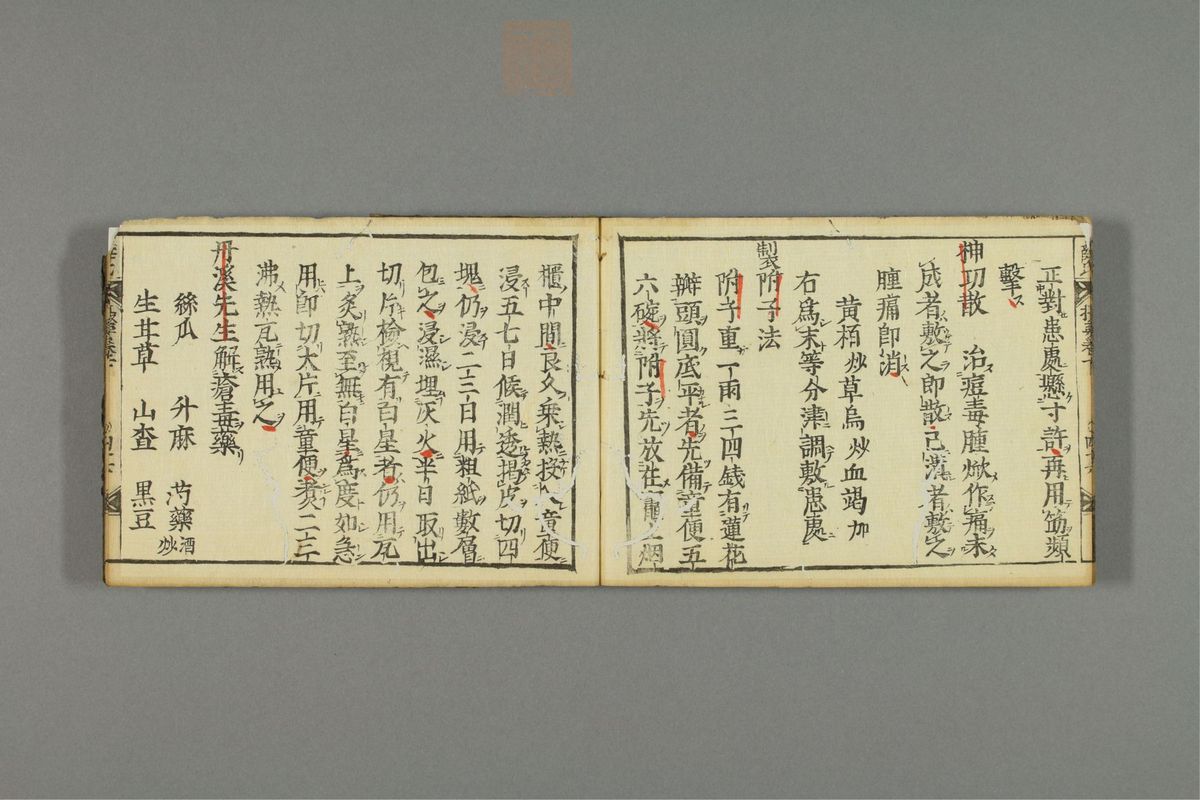 正對患處懸寸許再用筯頻
擊
神功散　治痘毒腫焮作痛未
成者敷之即散已潰者敷之
腫痛即消
黃栢炒草烏炒血竭加
右爲末等分津調敷患處
製附子法
附子重一兩三四錢有蓮花
瓣頭圓底平者先備童便五
六碗將附子先放在竈上烟
櫃中間良久乘熱投入童便
浸五七日候潤透揭皮切四
塊仍浸二三日用粗紙數層
包之浸濕埋灰火半日取出
切片檢視有白星者仍用瓦
上炙熱至無白星爲度如急
用即切大片用童便煮二三
沸熱瓦熟用之
丹溪先生解瘡毒藥
絲瓜　升麻　芍藥酒炒
生甘草　山楂　黑豆